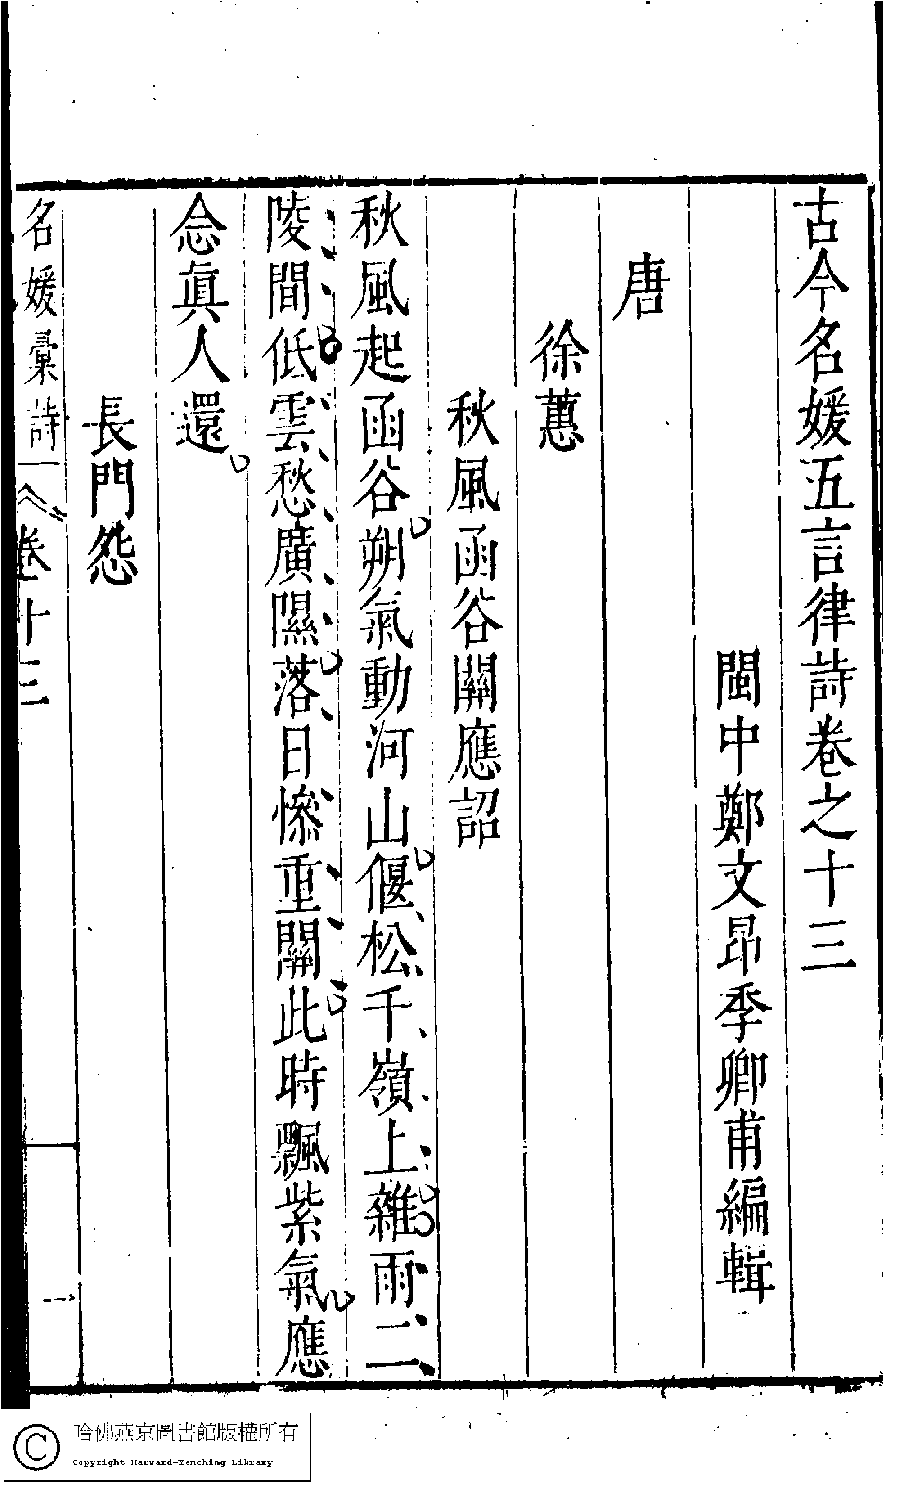 古今名媛五言律詩卷之十三
閩中鄭文昂季卿甫編輯
唐
徐蕙
秋風函谷關應詔
秋風起函谷朔氣動河山偃松千嶺上雜雨二
陵間低雲愁廣隰落日慘重關此時飄紫氣應
念眞人還
長門怨
名媛彙詩 卷十三 一
哈佛燕京圖書館版權所有
Copyright Harvard-Yenching Library